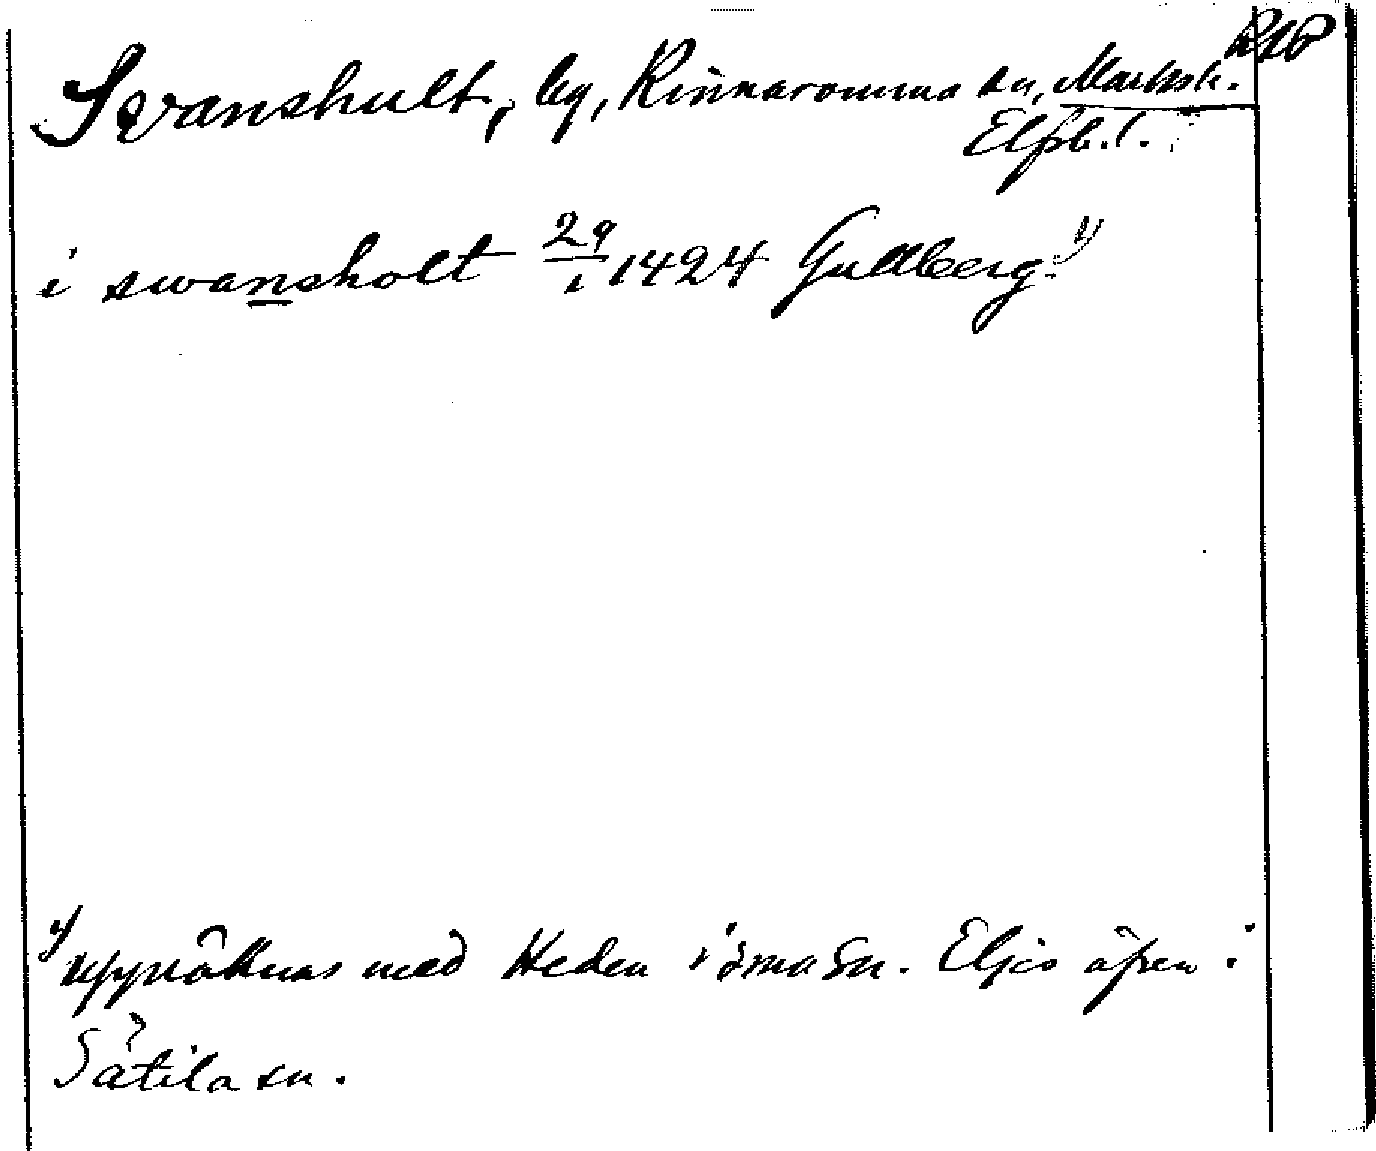 Svanshult, by, Kinnaromma sn, Marks h.
Elfsb. l.
i swansholt 29/1 1424 Gullberg. 1)
1) uppräknas med Heden i sma sn. Eljes äfven i
Sätila sn.